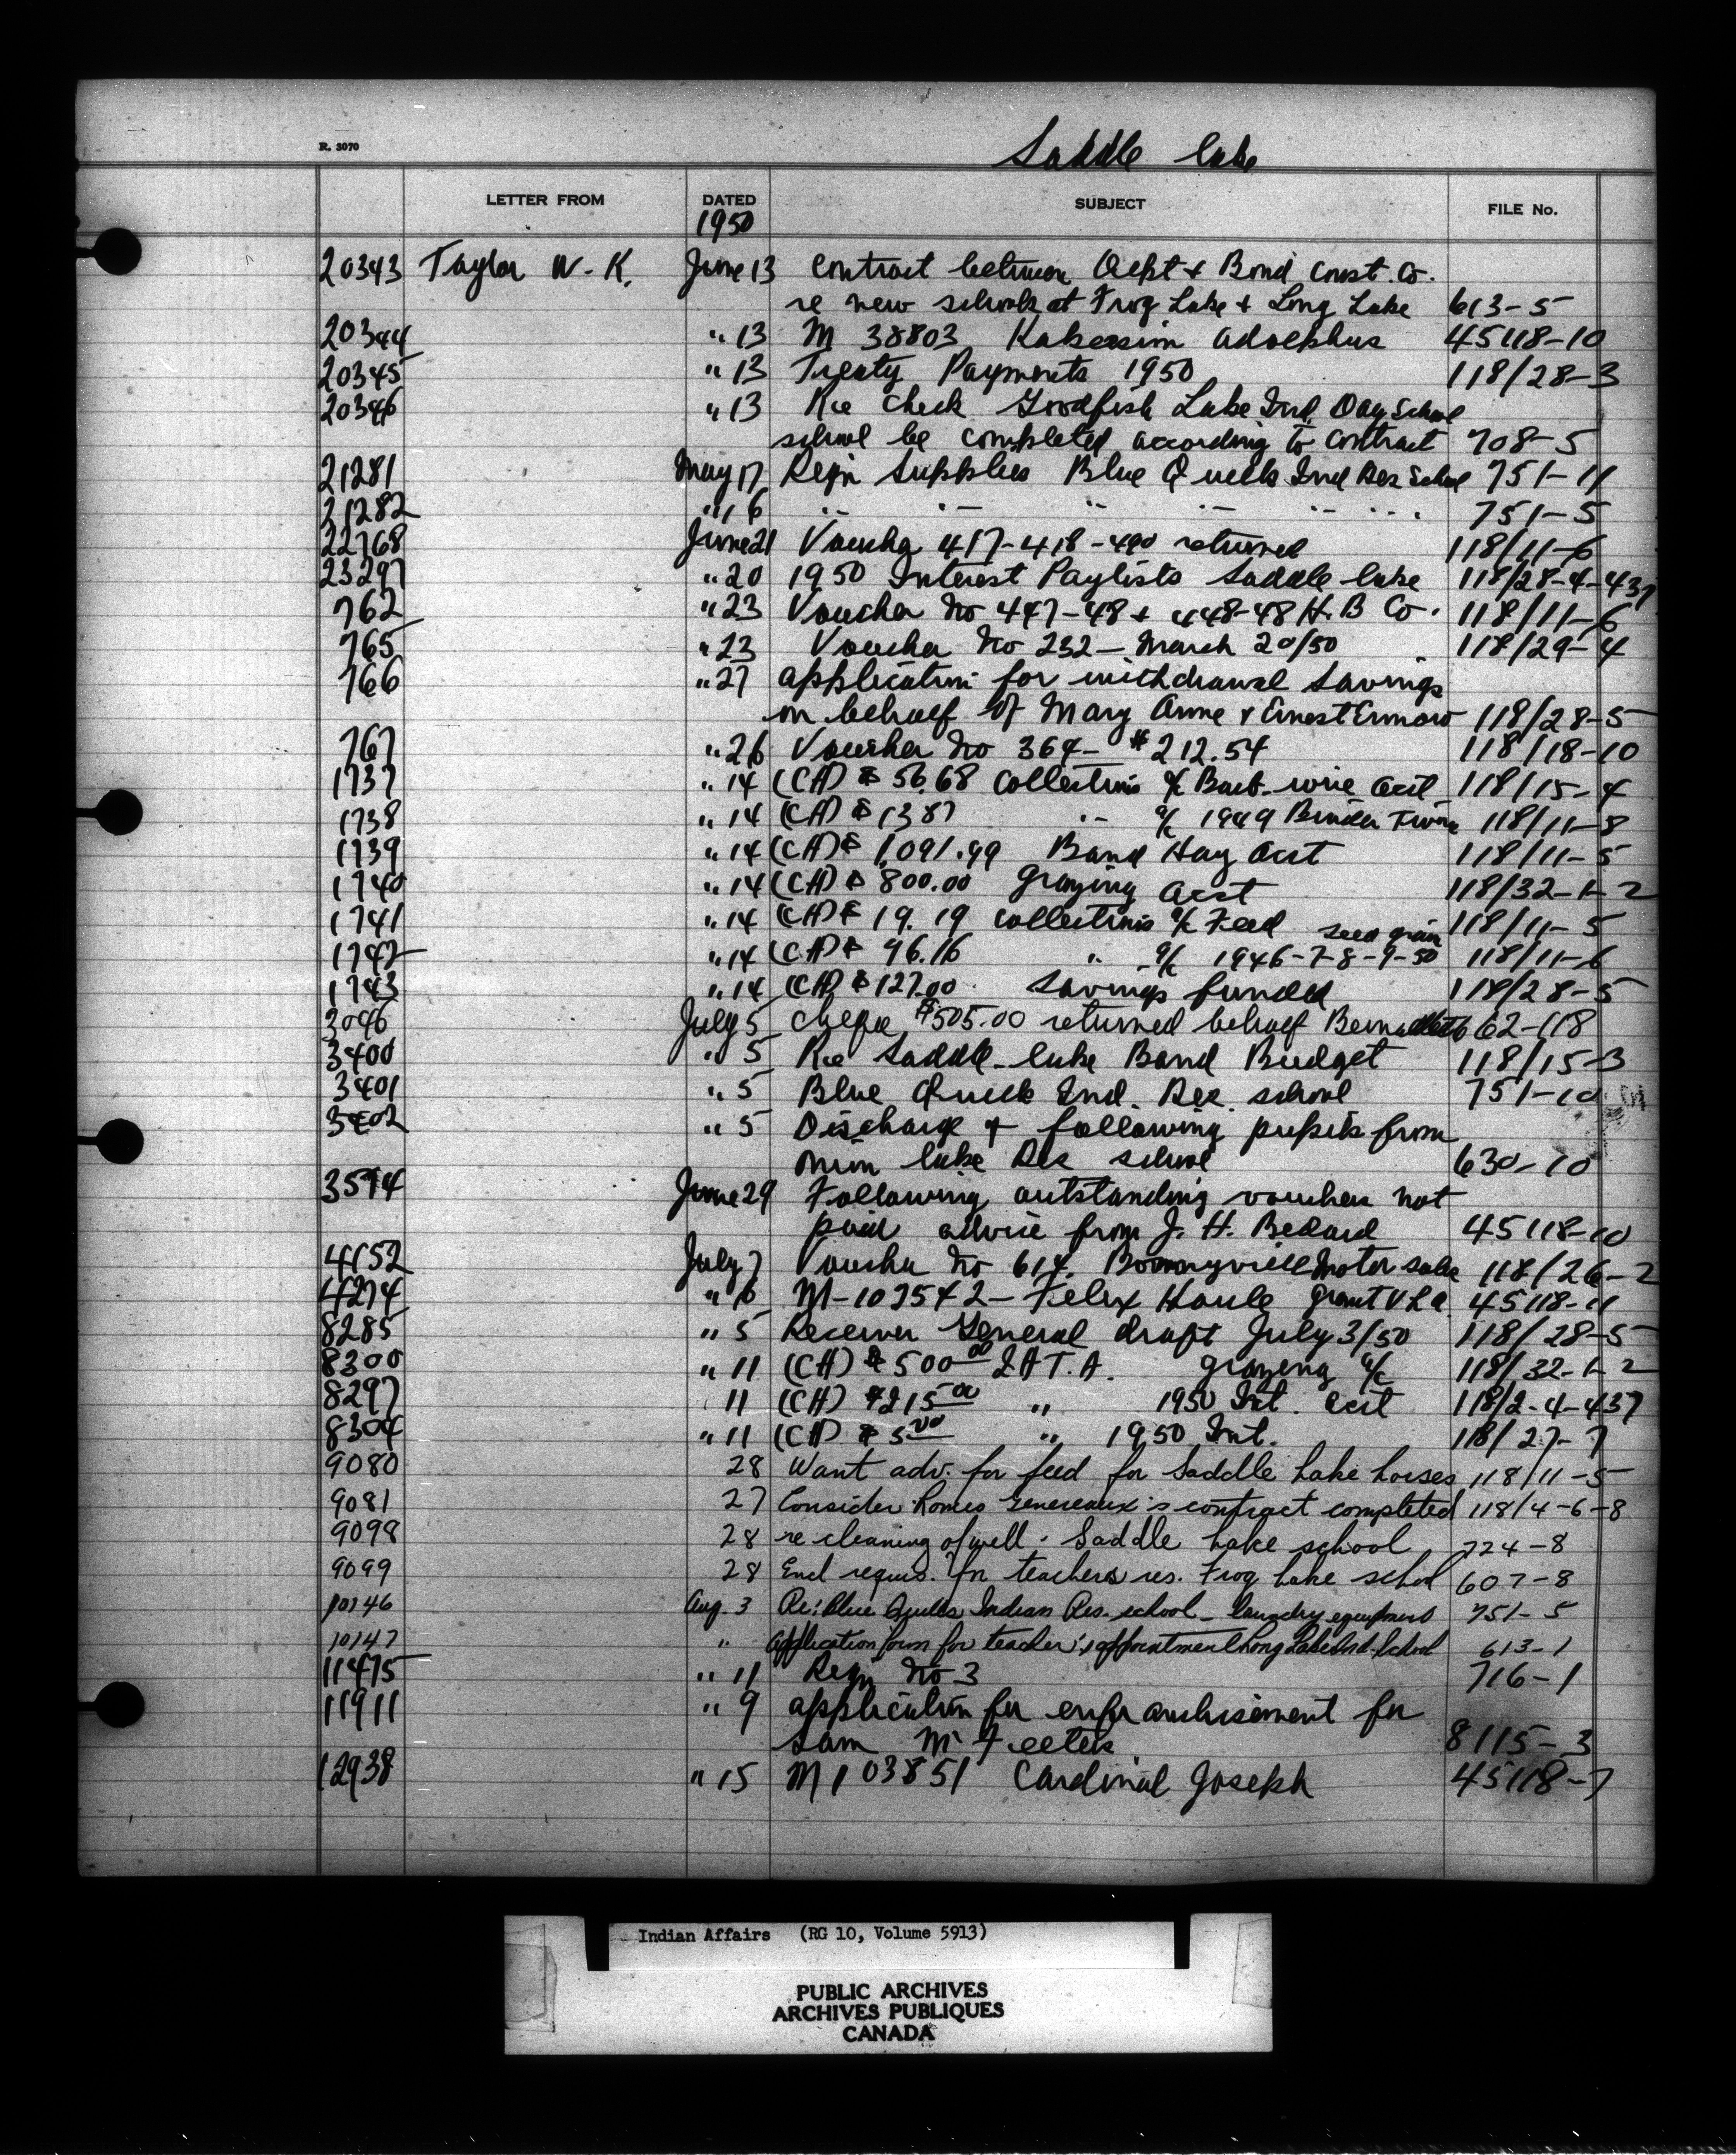 R. 3070
Saddle Lake
LETTER FROM DATED SUBJECT FILE No.
1950
20343 Taylor W. K. June 13 Contract between Dept & Bond Const. Co.
re new schools at Frog Lake & Long Lake 613-5
20344 " 13 M 38803 Adolphus 45118-10
20345 " 13 Treaty Payments 1950 118/28-3
20346 " 13 Re check Goodfish Lake Ind. Day School
school be completed according to contract 708-5
21281 May 17 Reqn Supplies Blue Quills Ind Res School 751-11
21282 " 16 " " " " " " 751-5
22768 June 21 Voucher 417-418-490 returned 118/11-6
23297 " 20 1950 Interest Paylists Saddle Lake 118/28-4-437
762 " 23 Voucher No 447-48 & 448-48 H. B Co. 118/11-6
765 " 23 Voucher No 232 - March 20/50 118/29-4
766 " 27 application for withdrawal savings
on behalf of Mary Anne & Ernest 118/28-5
767 " 26 Voucher No 364- $212.54 118/18-10
1737 " 14 (CH) $ 56.68 Collections a/c Barb-wire acct 118/15-4
1738 " 14 (CH) $ 1387 " a/c 1949 Binder Twine 118/11-8
1739 " 14 (CH) $ 1,091.99 Band Hay acct 118/11-5
1740 " 14 (CH) $ 800.00 Grazing acct 118/32-1-2
1741 " 14 (CH) $ 19.19 collections a/c Feed 118/11-5
1742 " 14 (CH) $ 96.16 " a/c seed grain 1946-7-8-9-50 118/11-6
1743 " 14 (CH) $ 127.00 Savings funded 118/28-5
3046 July 5 cheque $505.00 returned behalf 662-118
3400 " 5 Re Saddle-Lake Band Budget 118/15-3
3401 " 5 Blue Quills Ind. Res. school 751-10
3402 " 5 Discharge of following pupils from
Onion Lake Res school 630-10
3594 June 29 Following outstanding vouchers not
paid advice from J. H. Bedard 45118-10
4152 July 7 Voucher No 614. Bonnyville Motor Sales 118/26-2
4274 " 6 M-107542 - Felix Houle grant V L A 45118-11
8285 " 5 Receiver General draft July 3/50 118/28-5
8300 " 11 (CH) $ 500 00 I A T. A. grazing a/c 118/32-1-2
8297 11 (CH) $215 00 " 1950 Int. acct 118/2-4-437
8304 " 11 (CH) $ 5 00 " 1950 Int. 118/27-7
9080 28 Want adv. for feed for Saddle Lake horses 118/11-5
9081 27 Consider Romeo Genereaux's contract completed 118/4-6-8
9098 28 re cleaning of well. Saddle Lake school 724-8
9099 28 Encl requis. for teachers res. Frog Lake school 607-8
10146 Aug. 3 Re: Blue Quills Indian Res. school - laundry equipment 751-5
10147 " Application form for teacher's appointment Long Lake Ind. School 613-1
11475 " 11 Reqn No 3 716-1
11911 " 9 application for enfranchisement for
Sam 8115-3
12938 " 15 M103851 Cardinal Joseph 45118-7
Indian Affairs (RG 10, Volume 5913)
PUBLIC ARCHIVES
ARCHIVES PUBLIQUES
CANADA